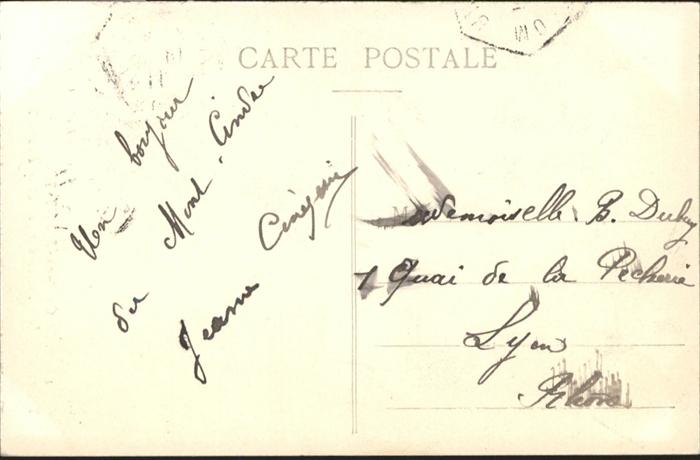 CARTE POSTALE
Un bonjour
du Mont Cindre
Jeanne
Mademoiselle B. Dubuy
1 Quai de la Pêcherie
Lyon
Rhône